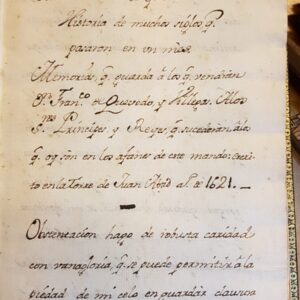 Historia de muchos siglos, q.
pasaron en un mes.
Memorias, q. guarda à los q. vendràn
D.n Fran.co de Quevedo, y Villegas, A los
Principes, y Reyes q. sucederàn à los
q. oy son en los afanes de este mundo, escri-
to en la Torre de Juan Abad al.º de 1621.
Obstentacion hago de robusta caridad
con vanagloria, q. se puede permitir à la
piedad de mi celo en guardar clausura